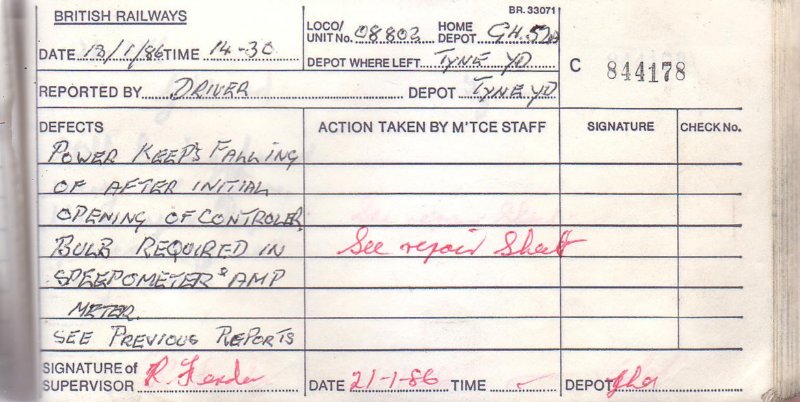 BRITISH RAILWAYS
BR. 33071
DATE 13/1/86 TIME 14-30
LOCO/ UNIT No. 08802 HOME DEPOT GH. 52A
DEPOT WHERE LEFT TYNE YD
C 844178
REPORTED BY DRIVER DEPOT TYNE YD
DEFECTS ACTION TAKEN BY M'TCE STAFF SIGNATURE CHECK No.
POWER KEEPS FALLING
OF AFTER INITIAL
OPENING OF CONTROLER
BULB REQUIRED IN See repair Sheet
SPEEPOMETER & AMP
METER.
SEE PREVIOUS REPORTS
SIGNATURE of SUPERVISOR R. DATE 21-1-86 TIME DEPOT